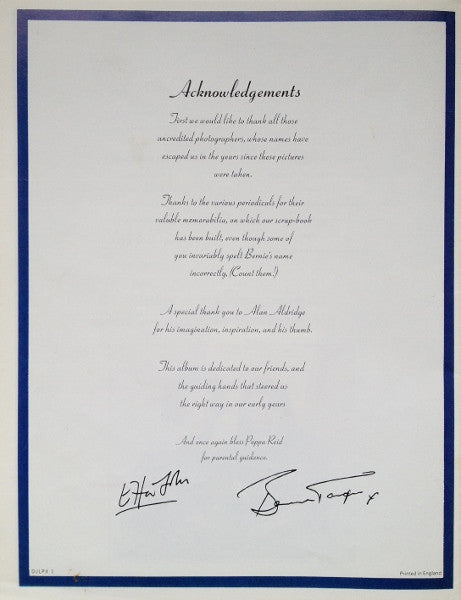 Acknowledgements
First we would like to thank all those
uncredited photographers, whose names have
escaped us in the years since these pictures
were taken.
Thanks to the various periodicals for their
valuable memorabilia, on which our scrap-book
has been built, even though some of
you invariably spelt Bernie's name
incorrectly, (Count them!)
A special thank you to Alan Aldridge
for his imagination, inspiration, and his thumb.
This album is dedicated to our friends, and
the guiding hands that steered us
the right way in our early years
And once again bless Poppa Reid
for parental guidence.
Elton John
Bernie Taupin x
DJLPX 1
Printed in England